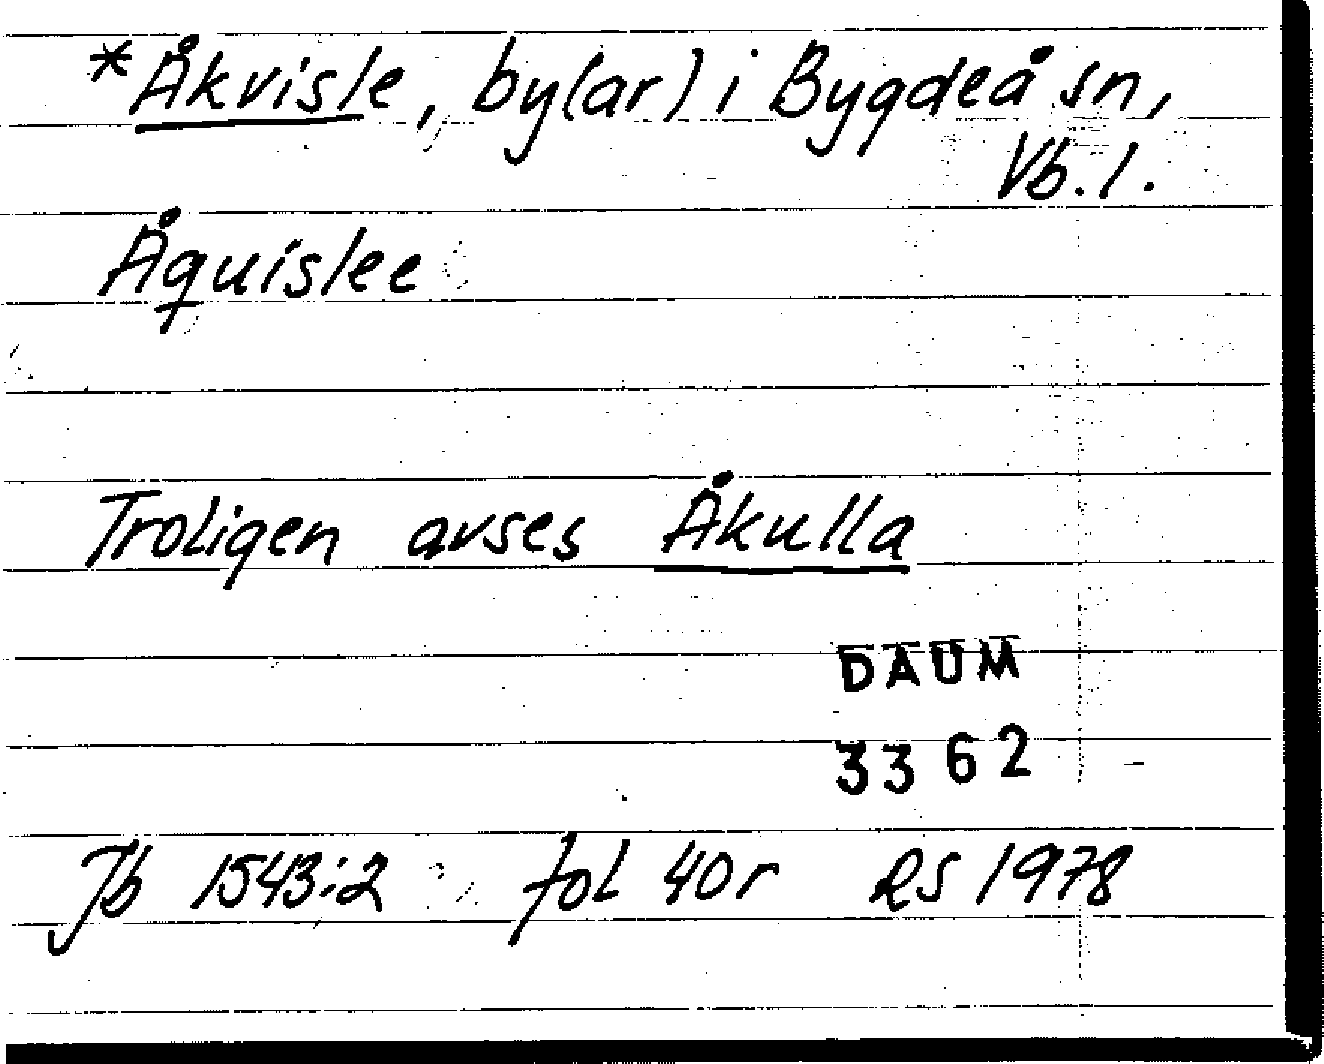 *Åkvisle, by(ar) i Bygdeå sn,
Vb. l.
Åquislee
Troligen avses Åkulla
DAUM
3362
Jb 1543:2 fol 40r RS 1978